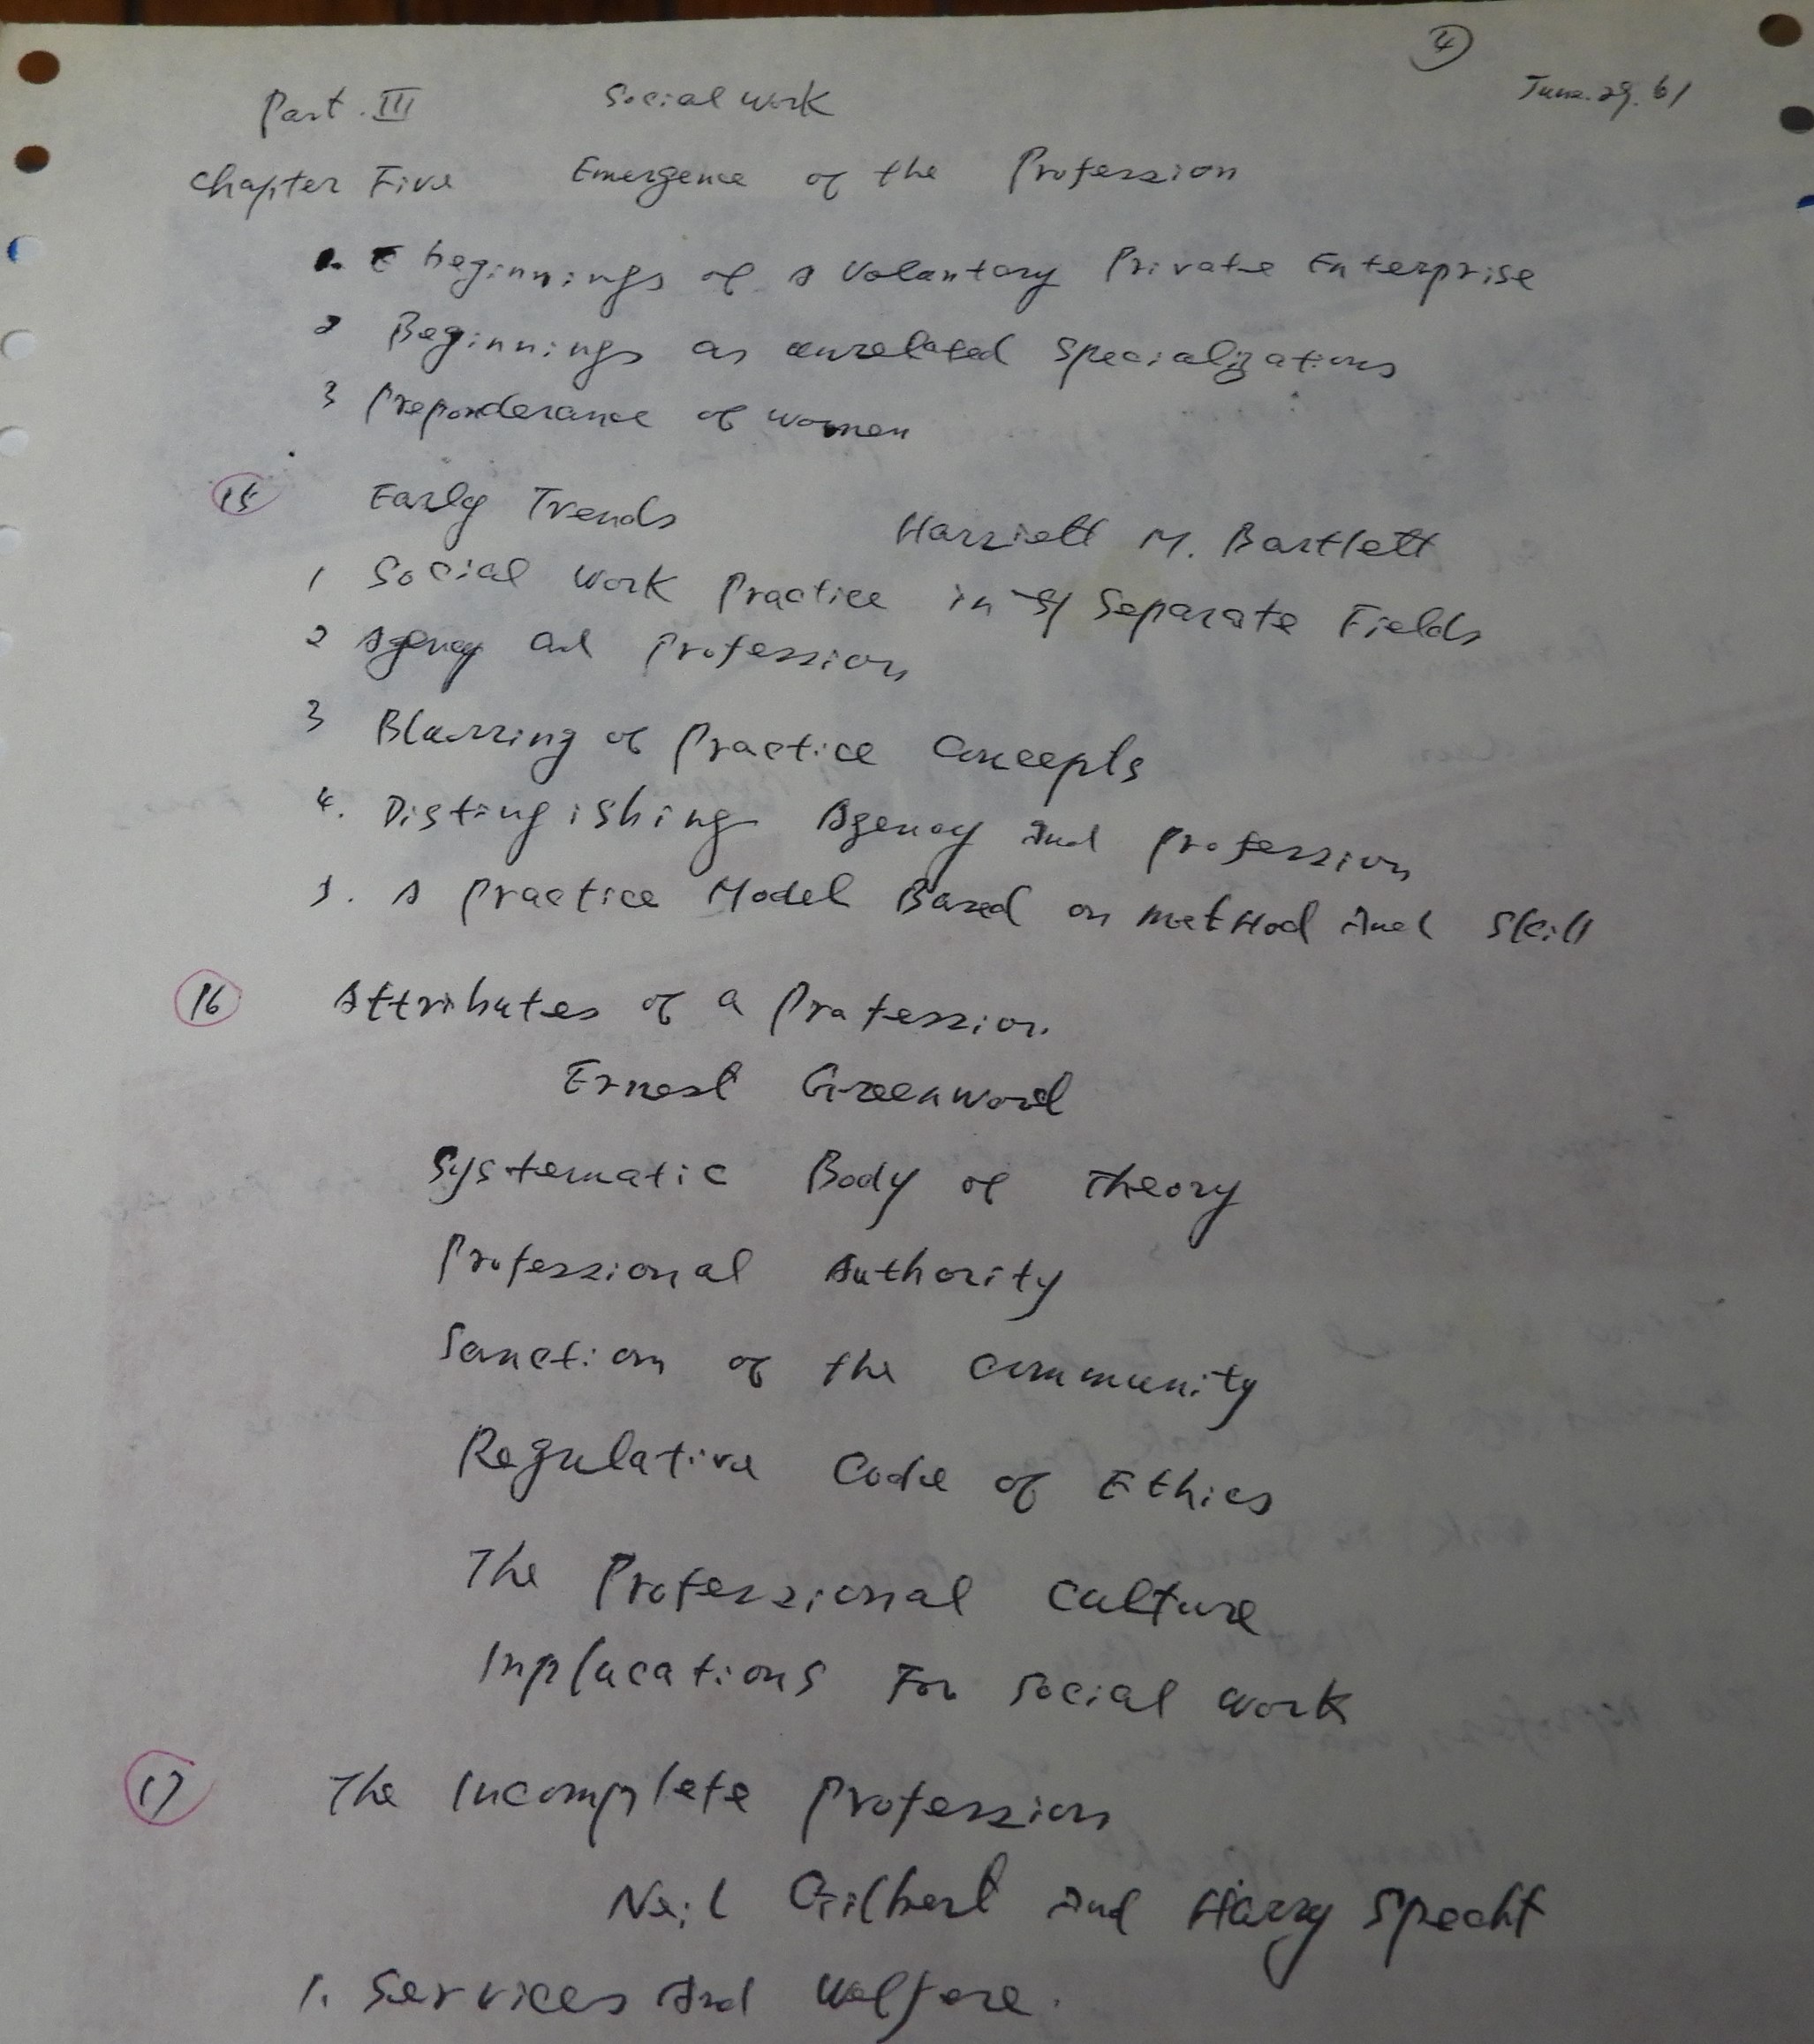 4
June. 29. 61
Part. III Social Work
Chapter Five Emergence of the Profession
1. beginnings of A Voluntary Private Enterprise
2 Beginnings as unrelated Specializations
3 Preponderance of women
15 Early Trends
Harriett M. Bartlett
1 Social Work Practice in Separate Fields
2 Agency and Profession
3 Blurring of Practice Concepts
4. Distingishing Agency And Profession
5. A Practice Model Based on Method And Skill
16 Attributes of a Profession.
Ernest Greenwood
Systematic Body of Theory
Professional Authority
Sanction of the Community
Regulative Code of Ethics
The Professional Culture
Inplacations For Social Work
17 The Incomplete Profession
Neil Gilbert And Harry Specht
1. Services And Welfare.